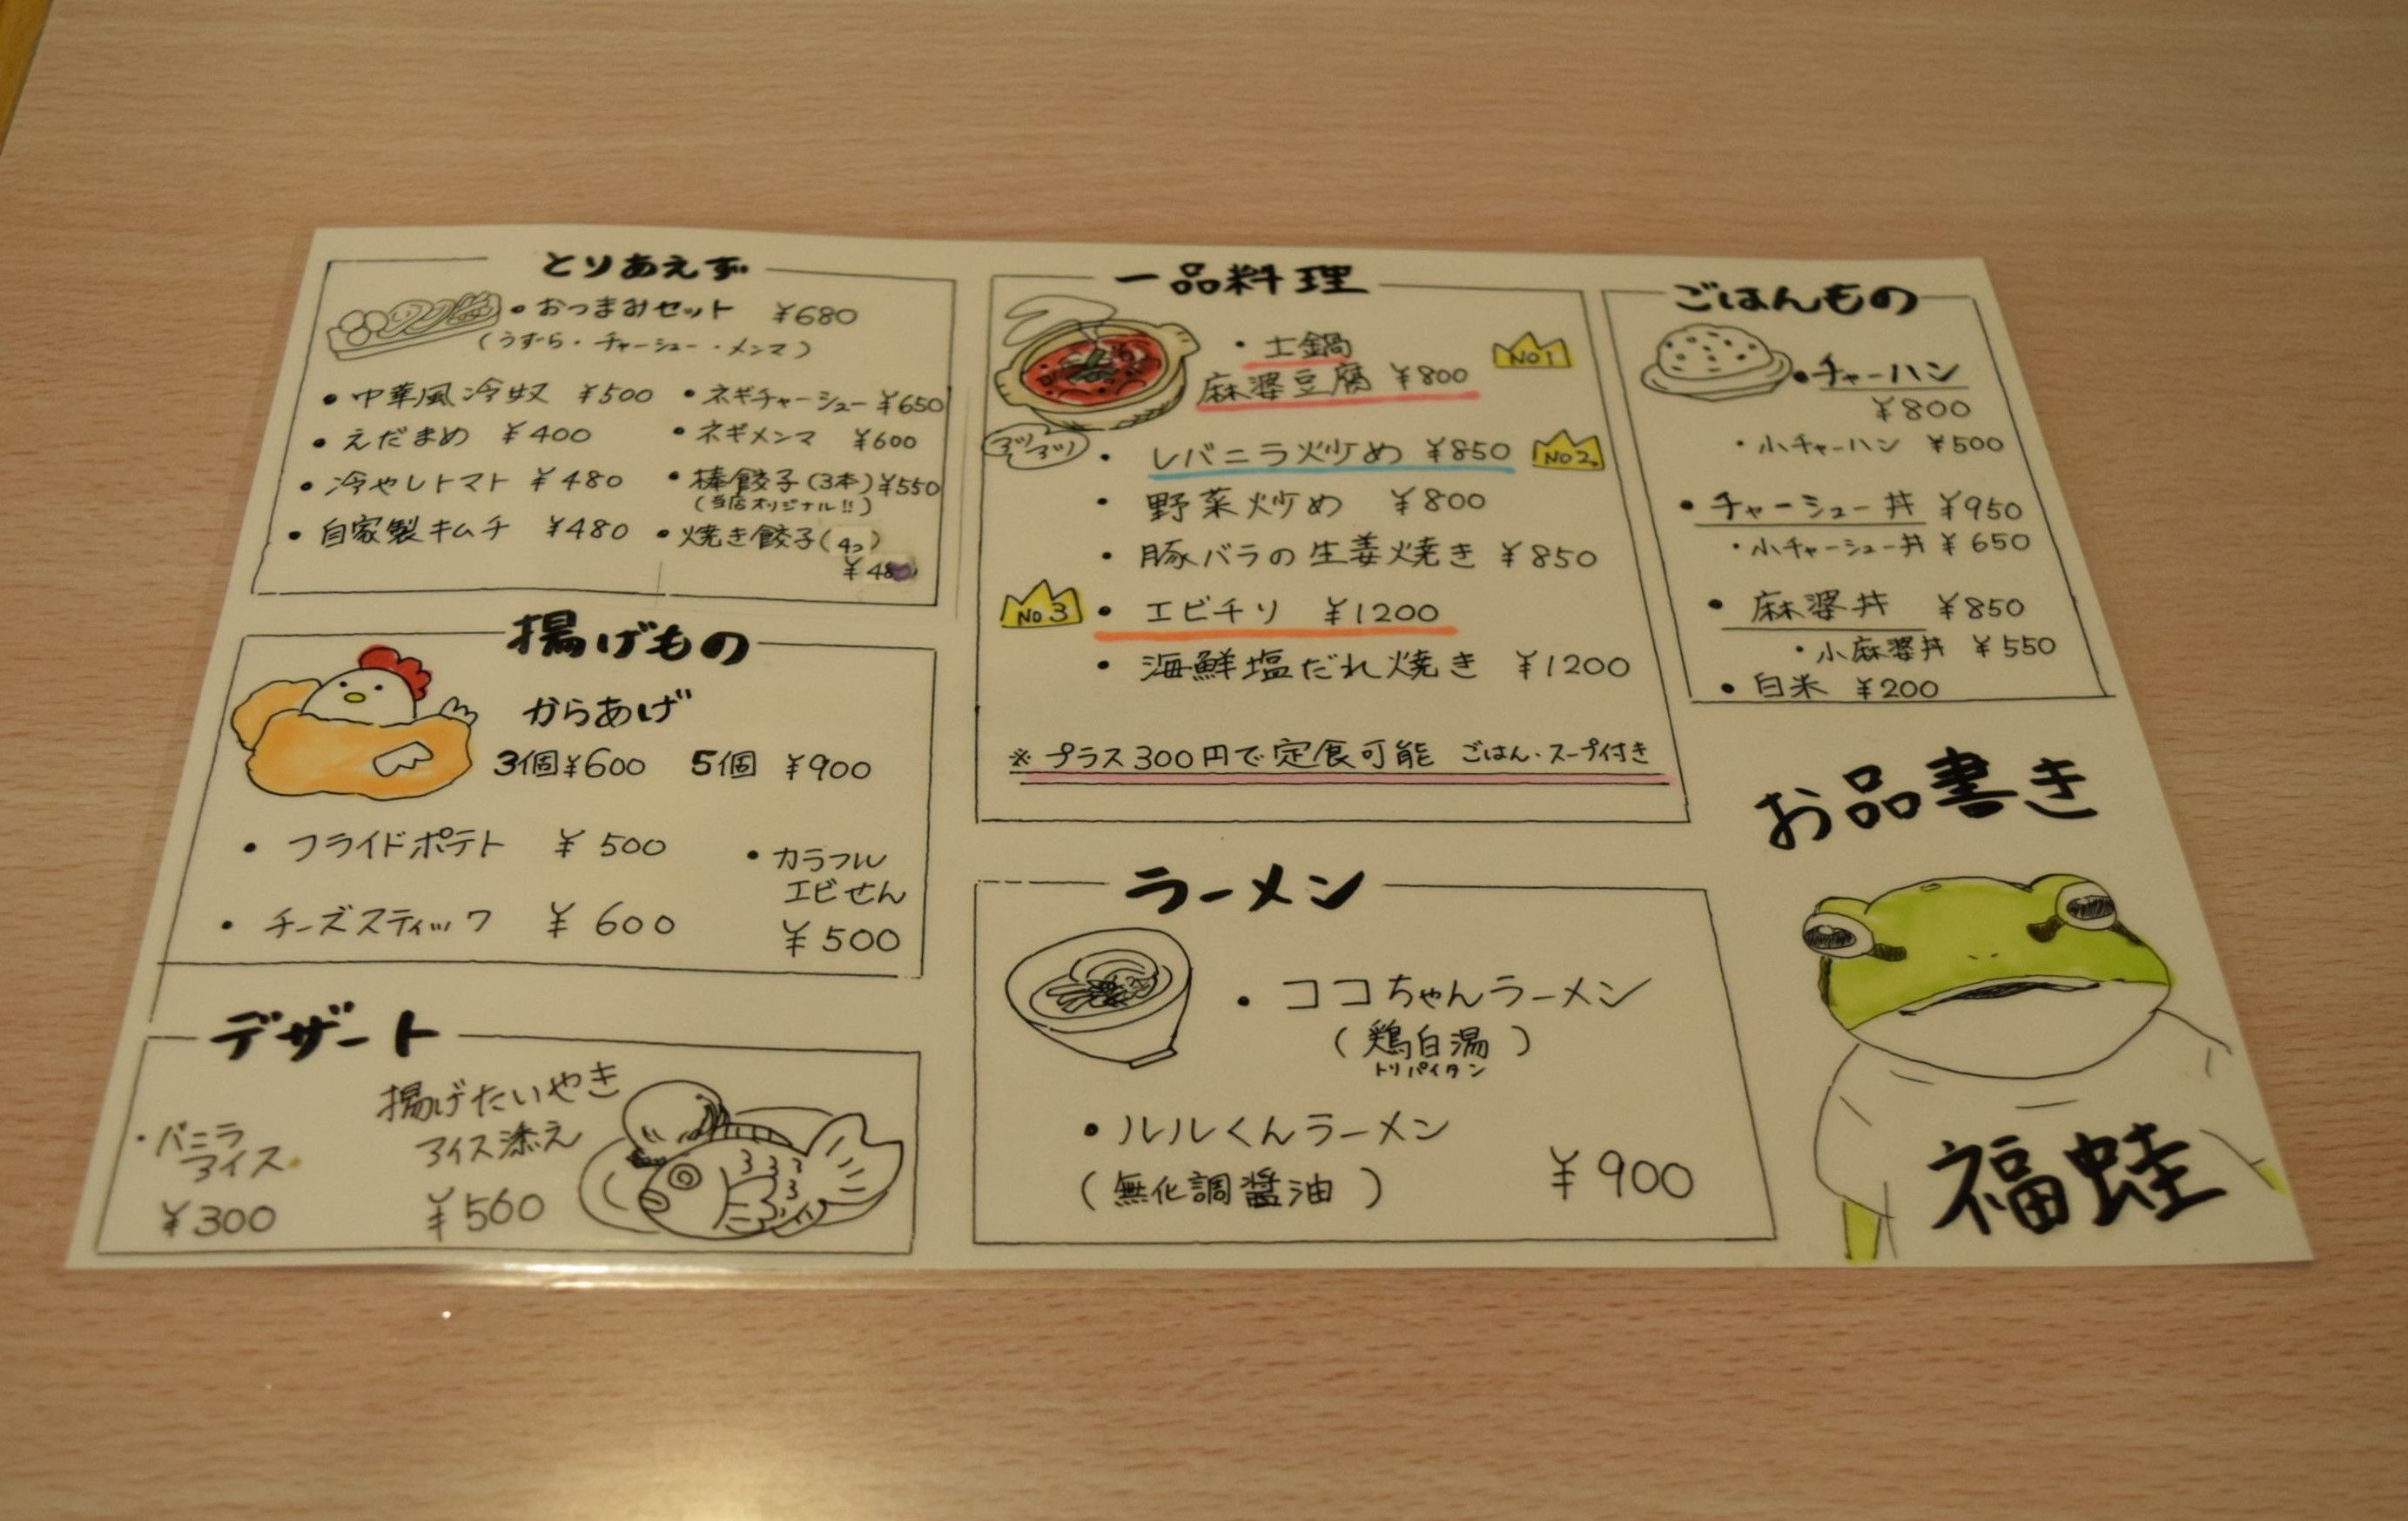 とりあえず
・おつまみセット ¥680
(うずら・チャーシュー・メンマ)
・中華風冷奴 ¥500
・えだまめ ¥400
・冷やしトマト ¥480
・自家製キムチ ¥480
・ネギチャーシュー ¥650
・ネギメンマ ¥600
・棒餃子(3本) ¥550
(当店オリジナル!!)
・焼き餃子(4コ)
揚げもの
からあげ
3個 ¥600 5個 ¥900
・フライドポテト ¥500
・チーズスティック ¥600
・カラフル
エビせん
¥500
デザート
・バニラ
アイス
¥300
揚げたいやき
アイス添え
¥560
一品料理
・土鍋
麻婆豆腐 ¥800
No1
・レバニラ炒め ¥850
No2
・野菜炒め ¥800
・豚バラの生姜焼き ¥850
No3
・エビチリ ¥1200
・海鮮塩だれ焼き ¥1200
※プラス300円で定食可能 ごはん・スープ付き
ラーメン
・ココちゃんラーメン
(鶏白湯)
トリパイタン
・ルルくんラーメン
(無化調醤油)
¥900
ごはんもの
・チャーハン
¥800
・小チャーハン ¥500
・チャーシュー丼 ¥950
・小チャーシュー丼 ¥650
・麻婆丼 ¥850
・小麻婆丼 ¥550
・白米 ¥200
お品書き
福蛙